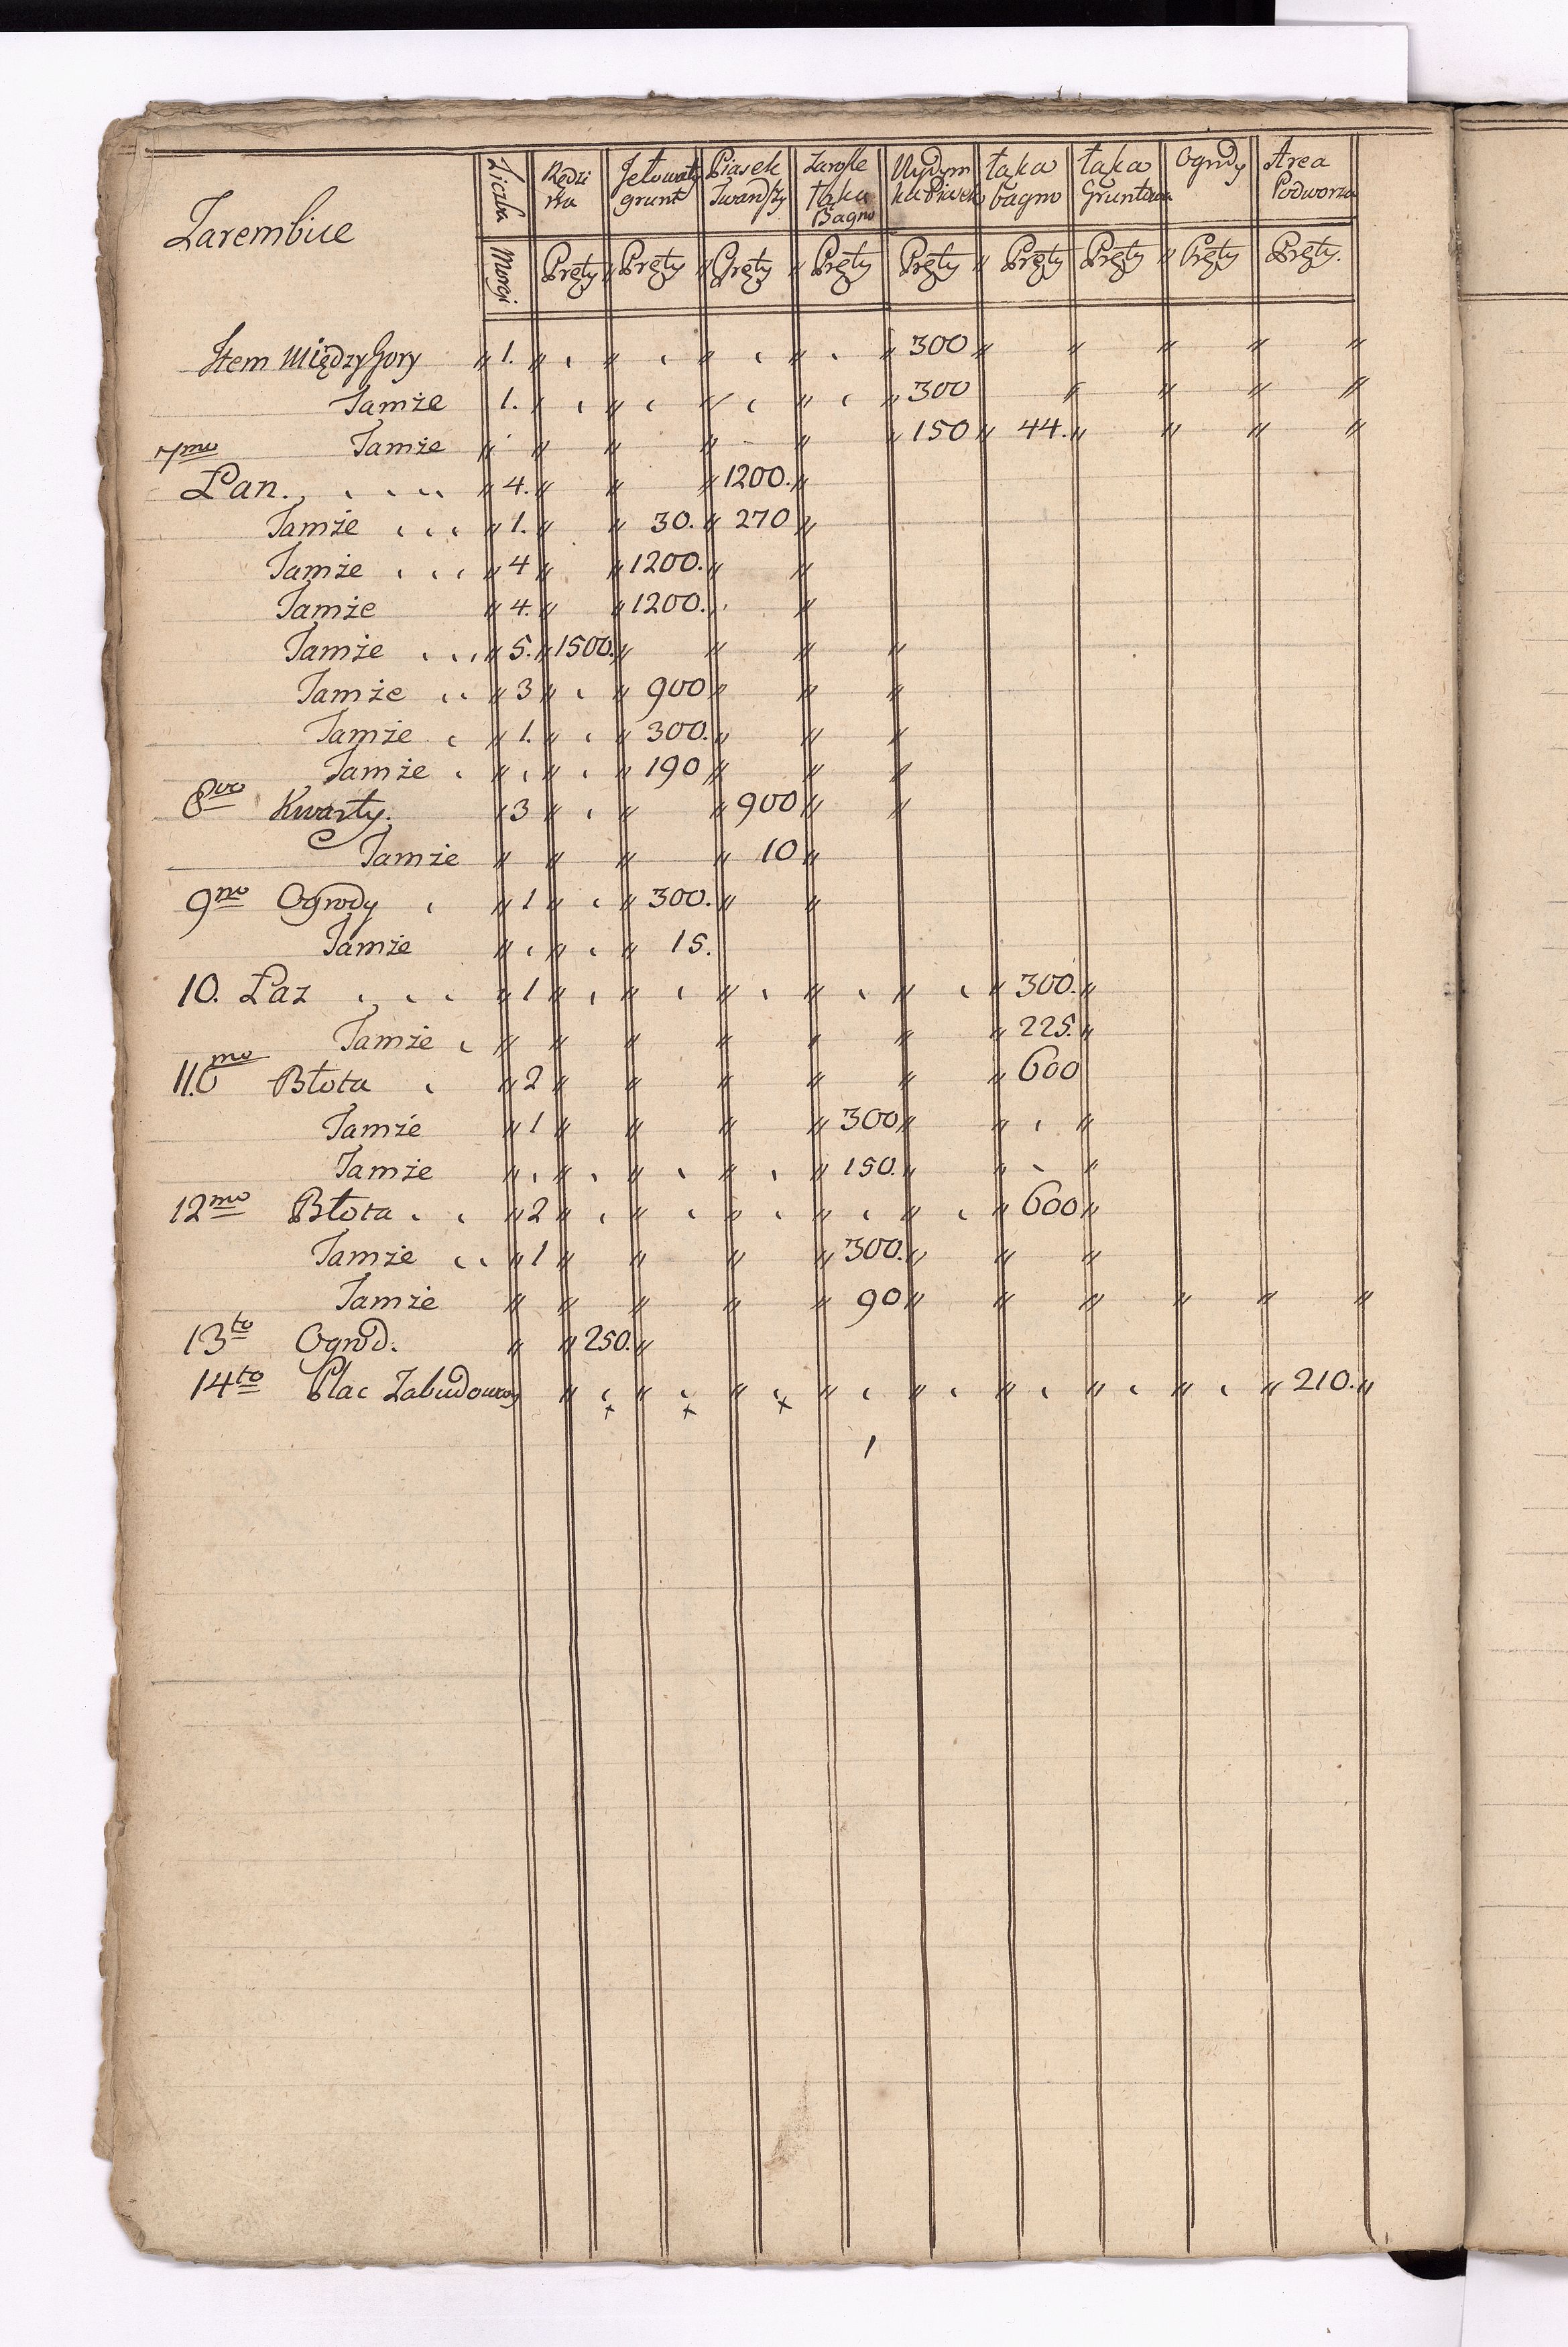 Zarembice
Liczba Morgi
Rędzi na Pręty
Jełowaty grunt Pręty
Piasek Twardszy Pręty
Zarosłe Łąka Bagno Pręty
Wydym ka Piasek Pręty
Łąka bagno Pręty
Łąka Gruntowa Pręty
Ogrody Pręty
Area Podworza Pręty.
Item Między Gory 1. 300
Tamże 1. 300
Tamże 150 44.
7mo Łan. 4. 1200.
Tamże 1. 30. 270
Tamże 4 1200.
Tamże 4. 1200.
Tamże 5. 1500.
Tamże 3 900
Tamże 1. 300.
Tamże 190
8vo Kwarty. 3 900
Tamże 10
9no Ogrody 1 300.
Tamże 15.
10. Łaz 1 300.
Tamże 225.
11.mo Błota 2 600
Tamże 1 300
Tamże 150.
12mo Błota 2 600
Tamże 1 300.
Tamże 90
13to Ogrod. 250.
14to Plac Zabudowany 210.
x x x
1